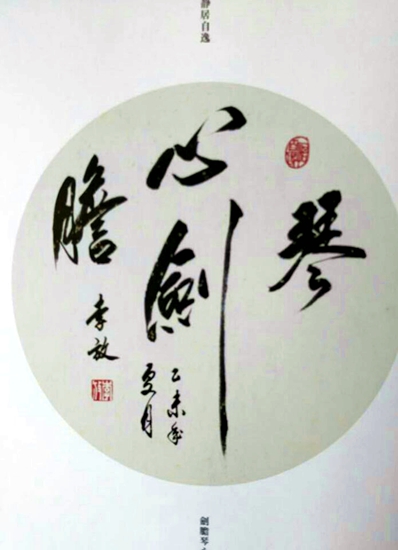 静居自逸
琴
心劍
膽
乙未年
夏月
李
劍膽琴